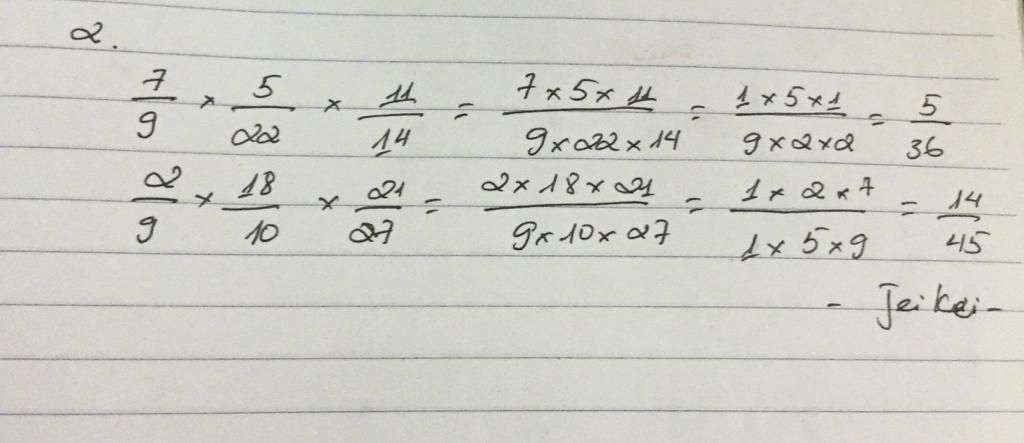 2.
7/9 × 5/22 × 11/14 = 7×5×11/9×22×14 = 1×5×1/9×2×2 = 5/36
2/9 × 18/10 × 21/27 = 2×18×21/9×10×27 = 1×2×7/1×5×9 = 14/45
- Jeikei -